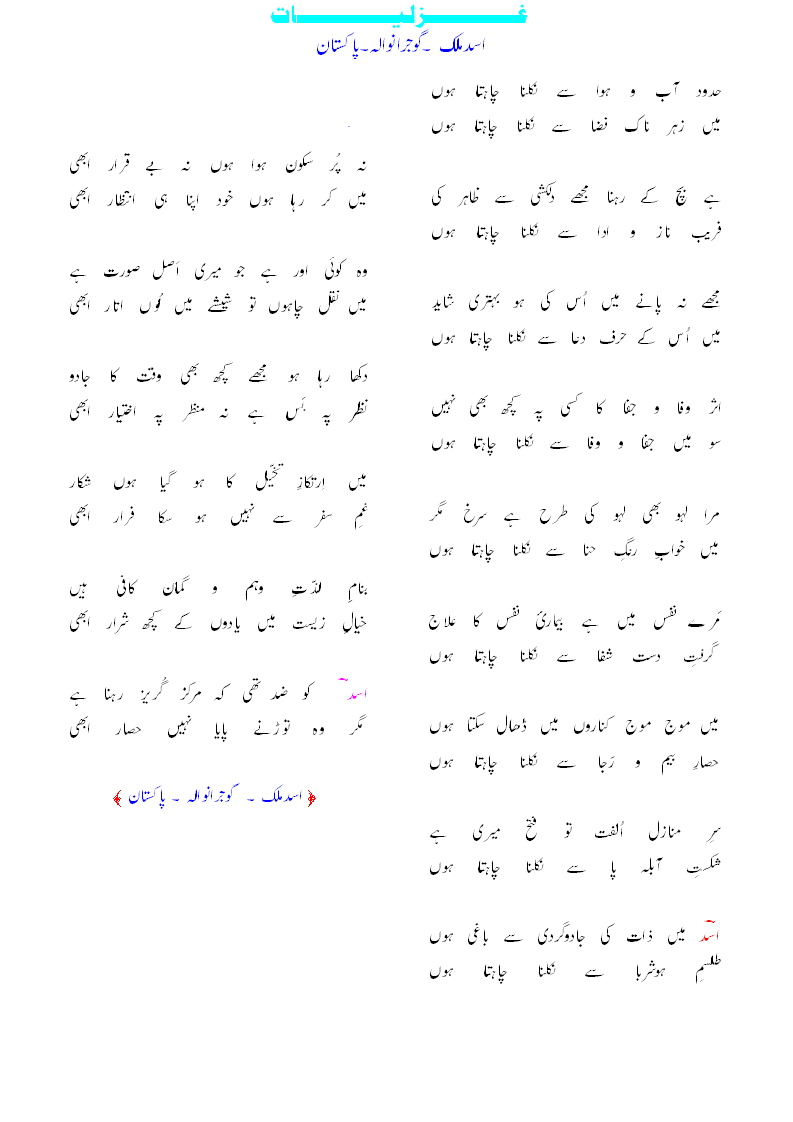 غزلیات
اسد ملک ۔گوجرانوالہ۔پاکستان
حدود آب و ہوا سے نکلنا چاہتا ہوں
میں زہر ناک فضا سے نکلنا چاہتا ہوں
ہے بچ کے رہنا مجھے دلکشی سے ظاہر کی
فریب ناز و ادا سے نکلنا چاہتا ہوں
مجھے نہ پانے میں اُس کی ہو بہتری شاید
میں اُس کے حرف دعا سے نکلنا چاہتا ہوں
اثر وفا و جفا کا کسی پہ کچھ بھی نہیں
سو میں جفا و وفا سے نکلنا چاہتا ہوں
مرا لہو بھی لہو کی طرح ہے سرخ مگر
میں خوابِ رنگِ حنا سے نکلنا چاہتا ہوں
مَرے نفس میں ہے بیماریٔ نفس کا علاج
گرفتِ دست شفا سے نکلنا چاہتا ہوں
میں موج موج کناروں میں ڈھال سکتا ہوں
حصارِ بیم و رَجا سے نکلنا چاہتا ہوں
سرِ منازل اُلفت تو فتح میری ہے
شکستِ آبلہ پا سے نکلنا چاہتا ہوں
اسدؔ میں ذات کی جادوگردی سے باغی ہوں
طلسمِ ہوشربا سے نکلنا چاہتا ہوں
نہ پُر سکون ہوا ہوں نہ بے قرار ابھی
میں کر رہا ہوں خود اپنا ہی انتظار ابھی
وہ کوئی اور ہے جو میری اَصل صورت ہے
میں نقل چاہوں تو شیشے میں لُوں اتار ابھی
دکھا رہا ہو مجھے کچھ بھی وقت کا جادو
نظر پہ بَس ہے نہ منظر پہ اختیار ابھی
میں اِرتکازِ تخیّل کا ہو گیا ہوں شکار
غمِ سفر سے نہیں ہو سکا فرار ابھی
بنامِ لذّتِ وہم و گمان کافی ہیں
خیالِ زیست میں یادوں کے کچھ شرار ابھی
اسدؔ کو ضد تھی کہ مرکز گُریز رہنا ہے
مگر وہ توڑنے پایا نہیں حصار ابھی
﴿ اسد ملک ۔ گوجرانوالہ ۔ پاکستان ﴾